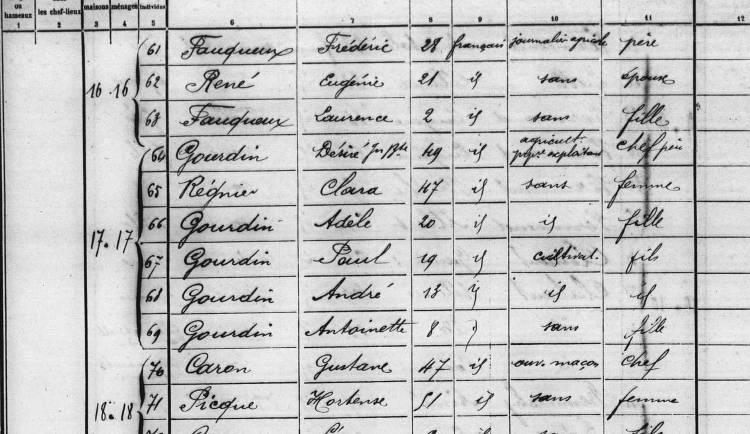 ou
hameaux
les chef-lieux
maisons
ménages
individus
1 2 3 4 5 6 7 8 9 10 11 12
61 Fauqueux Frédéric 28 français journalier agricole père
16 16 62 René Eugénie 21 id sans épouse
63 Fauqueux Laurence 2 id sans fille
64 Gourdin Désiré Jn Bte 49 id agricult. propre exploitant chef père
65 Régnier Clara 47 id sans femme
66 Gourdin Adèle 20 id id fille
17 17 67 Gourdin Paul 19 id cultivat. fils
68 Gourdin André 13 id id id
69 Gourdin Antoinette 8 sans fille
70 Caron Gustave 47 id ouv. maçon chef
18 18 71 Picque Hortense 51 id sans femme